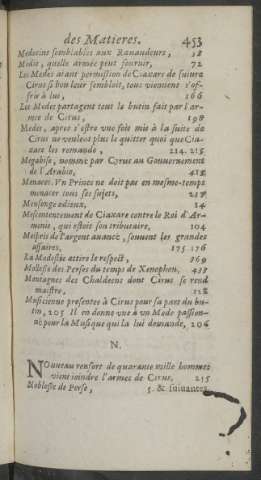 des Matieres. 453
Medecins semblables aux Ravaudeurs, 58
Medie, quelle armée peut fournir, 72
Les Medes aiant permission de Ciaxare de suivre
Cirus si bon leur sembloit, tous viennent s'of-
frir à lui, 166
Les Medes partagent tout le butin fait par l'ar-
mée de Cirus, 198
Medes, apres s'estre vne fois mis à la suite de
Cirus ne veulent plus le quitter quoi que Cia-
xare les remande, 214. 215
Megabise, nommé par Cyrus au Gouvernement
de l'Arabie, 412
Menaces. Vn Prince ne doit pas en mesme-temps
menacer tous ses sujets, 217
Mensonge odieux, 14
Mescontentement de Ciaxare contre le Roi d'Ar-
menie, qui estoit son tributaire, 104
Mespris de l'argent auancé, souuent les grandes
affaires, 175. 176
La Modestie attire le respect, 369
Mollesse des Perses du temps de Xenophon, 437
Montagnes des Chaldeens dont Cirus se rend
maistre, 128
Musicienne presentée à Cirus pour sa part du bu-
tin, 205 Il en donne vne à vn Mede passion-
né pour la Musique qui la lui demande, 206
N.
NOuueau renfort de quarante mille hommes
vient ioindre l'armée de Cirus, 215
Noblesse de Perse, 5. & suiuantes